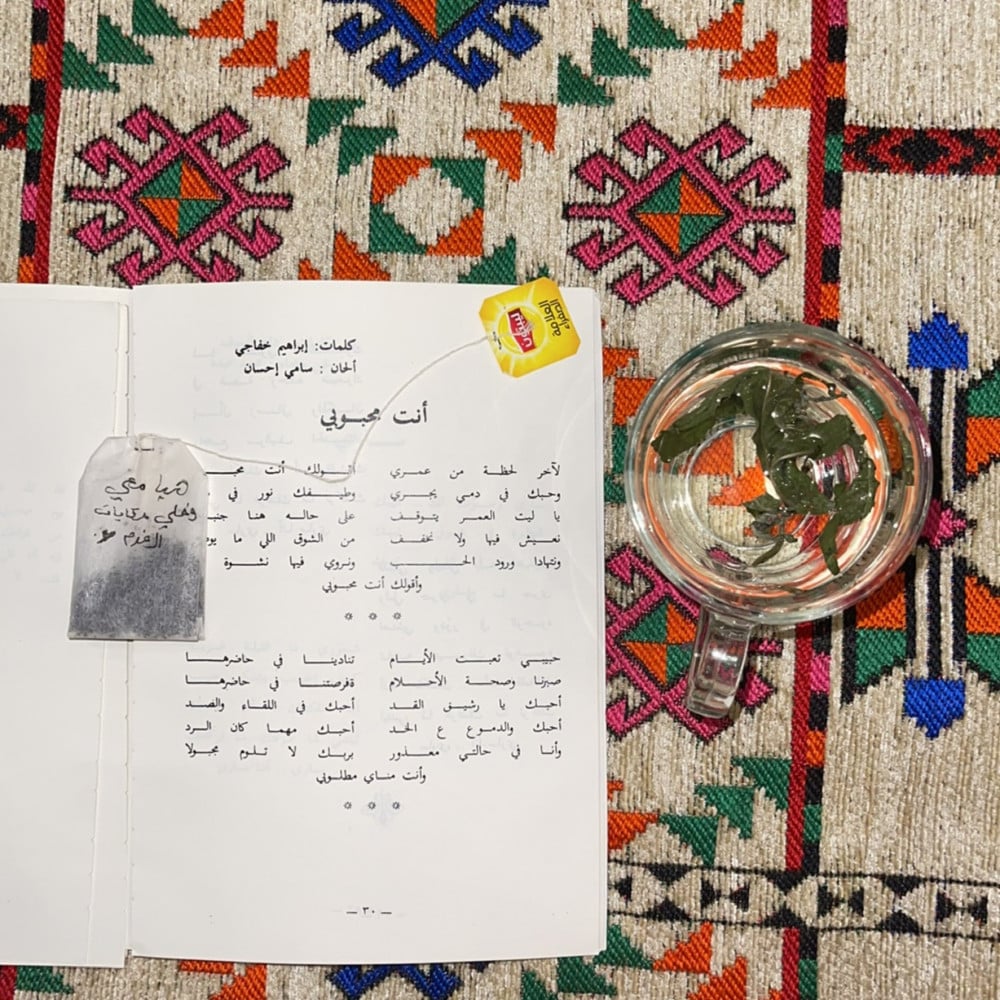 كلمات: إبراهيم خفاجي
ألحان: سامي إحسان
أنت محبوبي
لآخر لحظة من عمري أقولك أنت
وحبك في دمي يجري وطيفك نور في
يا ليت العمر يتوقف على حاله هنا
نعيش فيها ولا نخفف من الشوق اللي ما
ونتهادا ورود الحب ونروي فيها نشوة
وأقولك أنت محبوبي
* * *
حبيبي تعبت الأيام تنادينا في حاضرها
صبرنا وصحة الأحلام ةفرصتنا في حاضرها
أحبك يا رشيق القد أحبك في اللقاء والصد
أحبك والدموع ع الخد أحبك مهما كان الرد
وأنا في حالتي معذور بربك لا تلوم مجولا
وأنت مناي مطلوبي
* * *
— ٣٠ —
العلامة
الصفراء
ليبتون
هيا معي
بحكايات